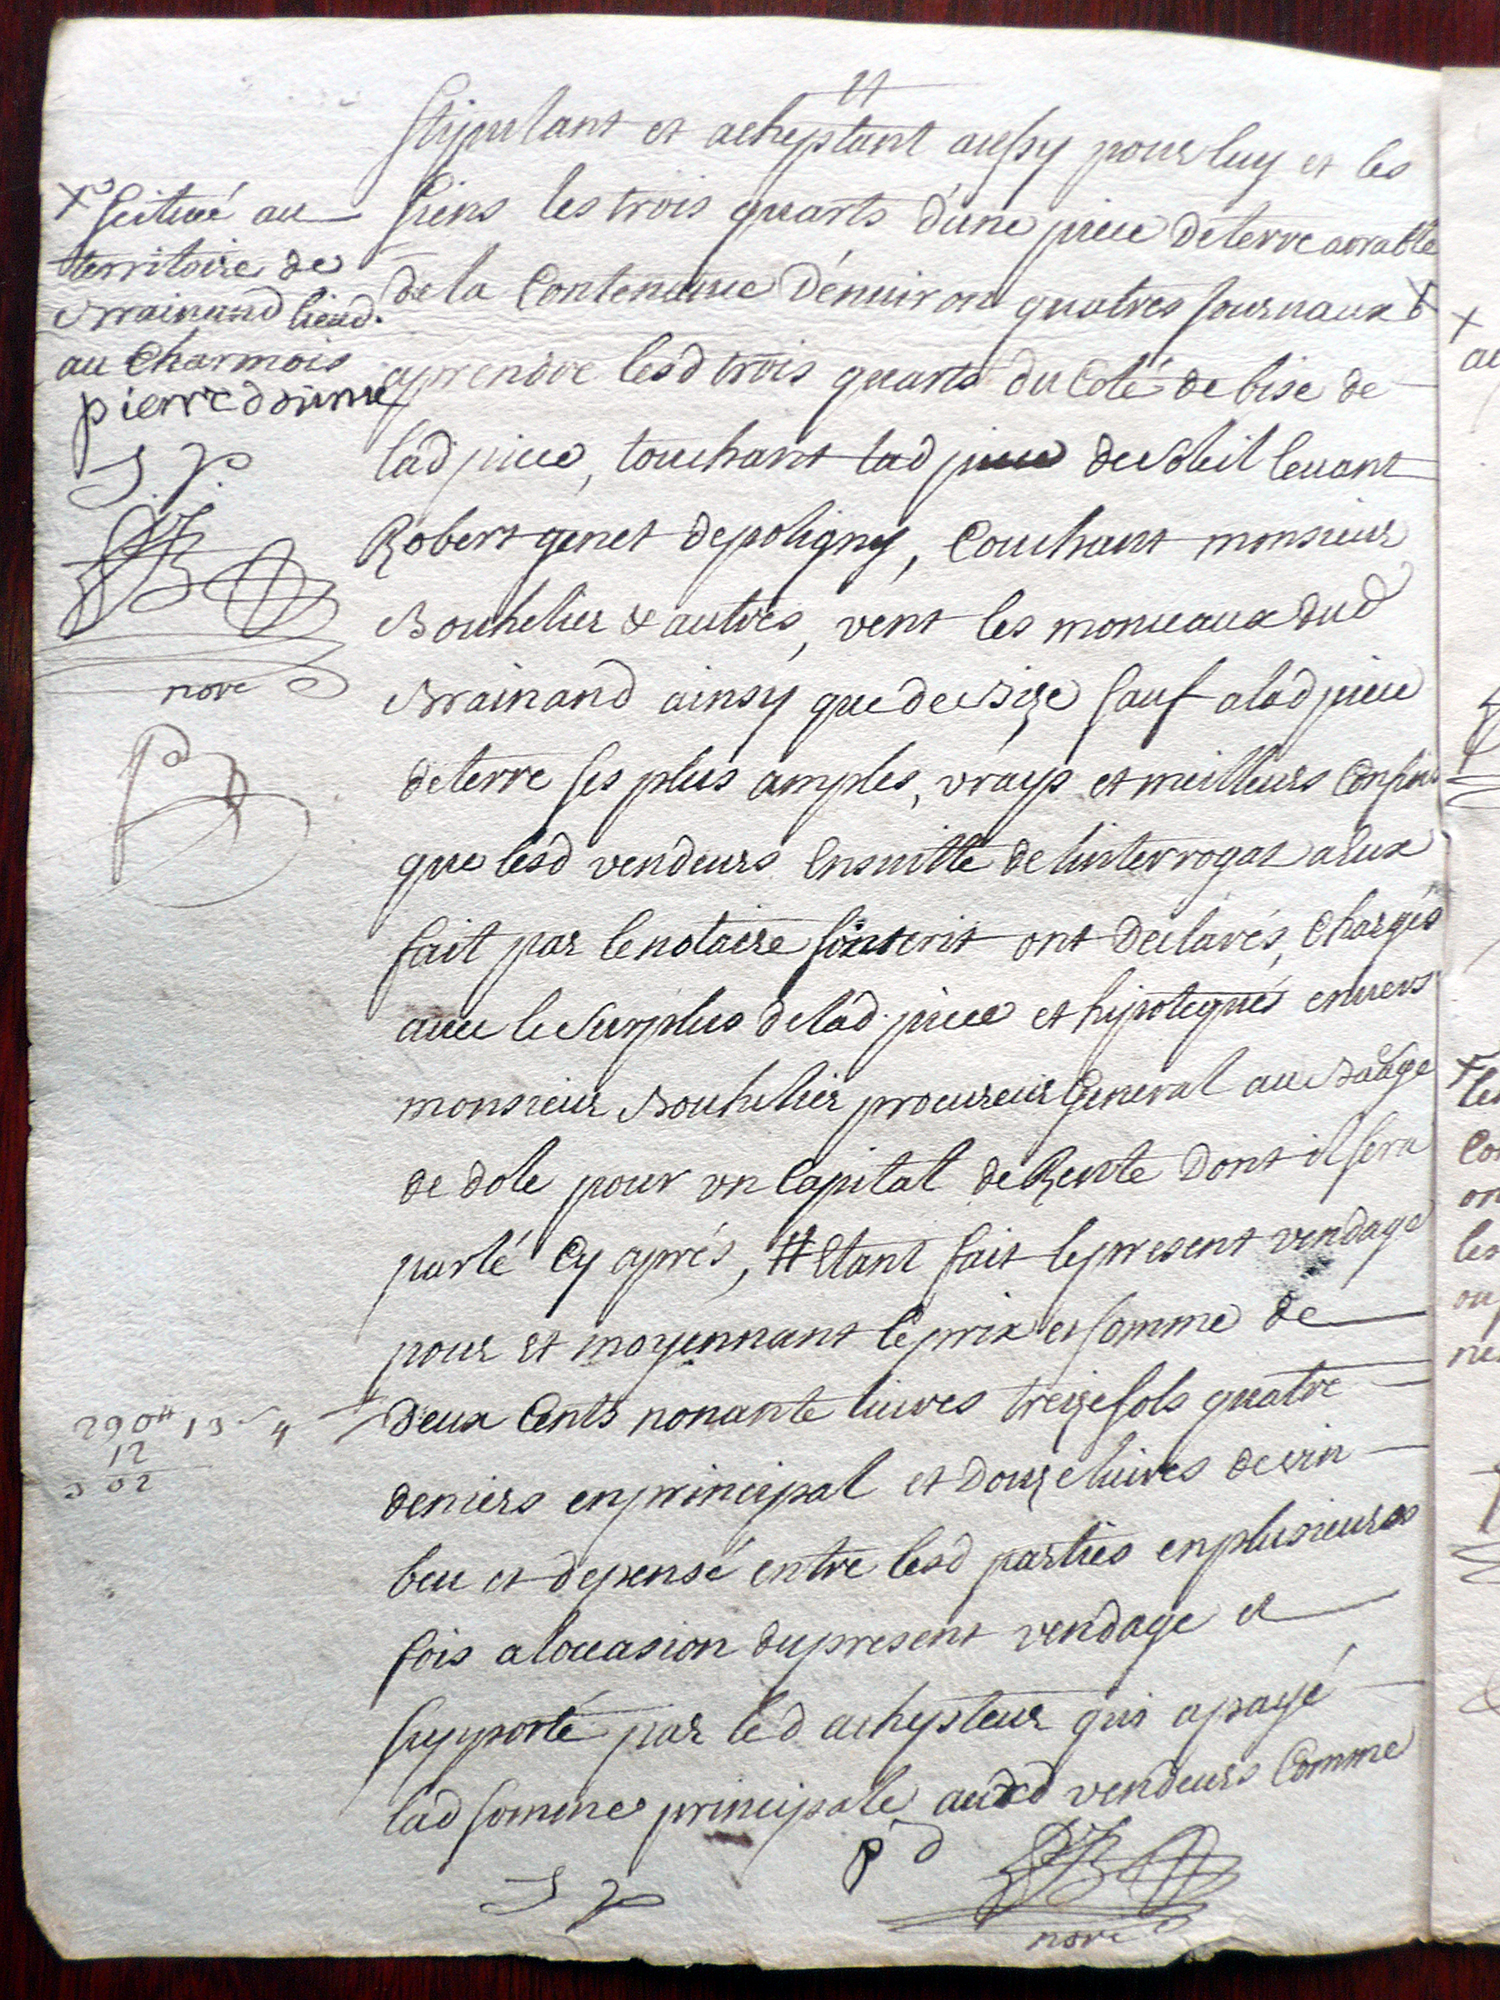 stipulant et acheptant aussy pour luy et les
siens les trois quarts d'une piece de terre arrable
de la Contenance d'enuiron quatres Journaux
aprendre lesd trois quarts du Coté de bise de
lad piece, touchant lad piece de soleil leuant
Robert genet de poligny, Couchant monsieur
Bouhelier & autres, vent les monceaux dud
Brainand ainsy que de Bize sauf a lad piece
de terre ses plus amples, vrays et meilleurs Confins
que lesd vendeurs Ensuitte de linterrogat a Eux
fait par le notaire soutscrit ont declarés, Chargés
auec le surplus de lad. piece et hipotequés enuers
monsieur Bouhelier procureur General au Bailâge
de dole pour vn Capital de Rente dont il sera
parlé Cy aprés, Etant fait le present vendage
pour et moyennant le prix et somme de
deux Cents nonante liures treize sols quatre
deniers en principal et douze liures de vin
beu et depensé entre lesd parties en plusieurs
fois a loccasion du present vendage et
supporté par led achepteur qui a payé
lad somme principale auxd vendeurs Comme
p d
J p
nore
x scitueé au
territoire de
Brainand lieud.
au Charmois
pierre donne
J p
nore
290 13 4
12
302